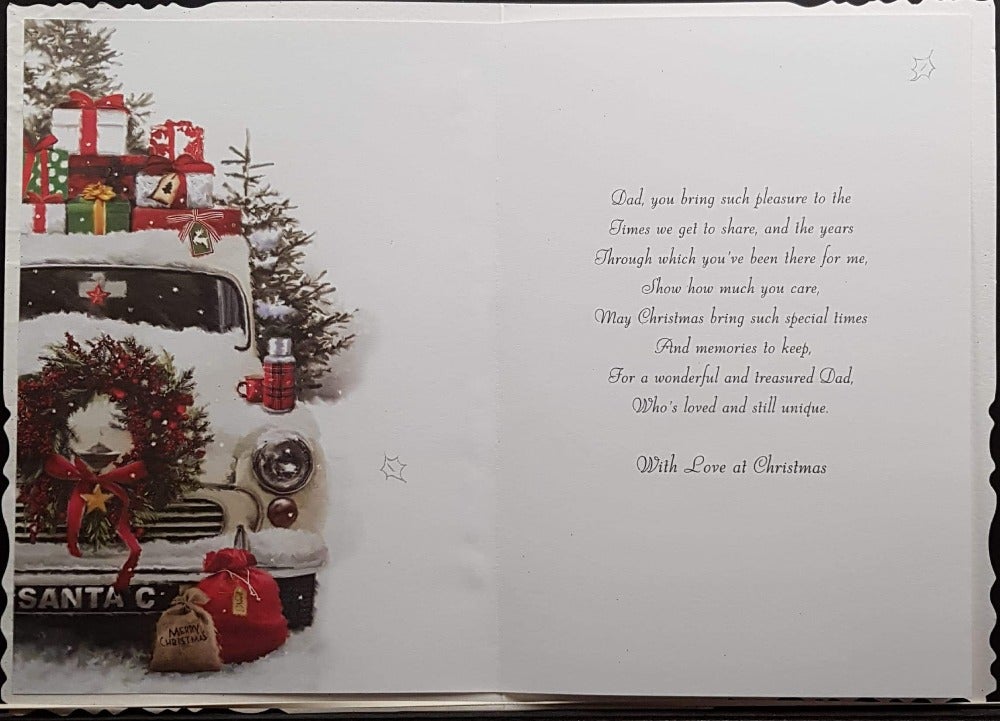 SANTA C
MERRY
CHRISTMAS
Dad, you bring such pleasure to the
Times we get to share, and the years
Through which you've been there for me,
Show how much you care,
May Christmas bring such special times
And memories to keep,
For a wonderful and treasured Dad,
Who's loved and still unique.
With Love at Christmas